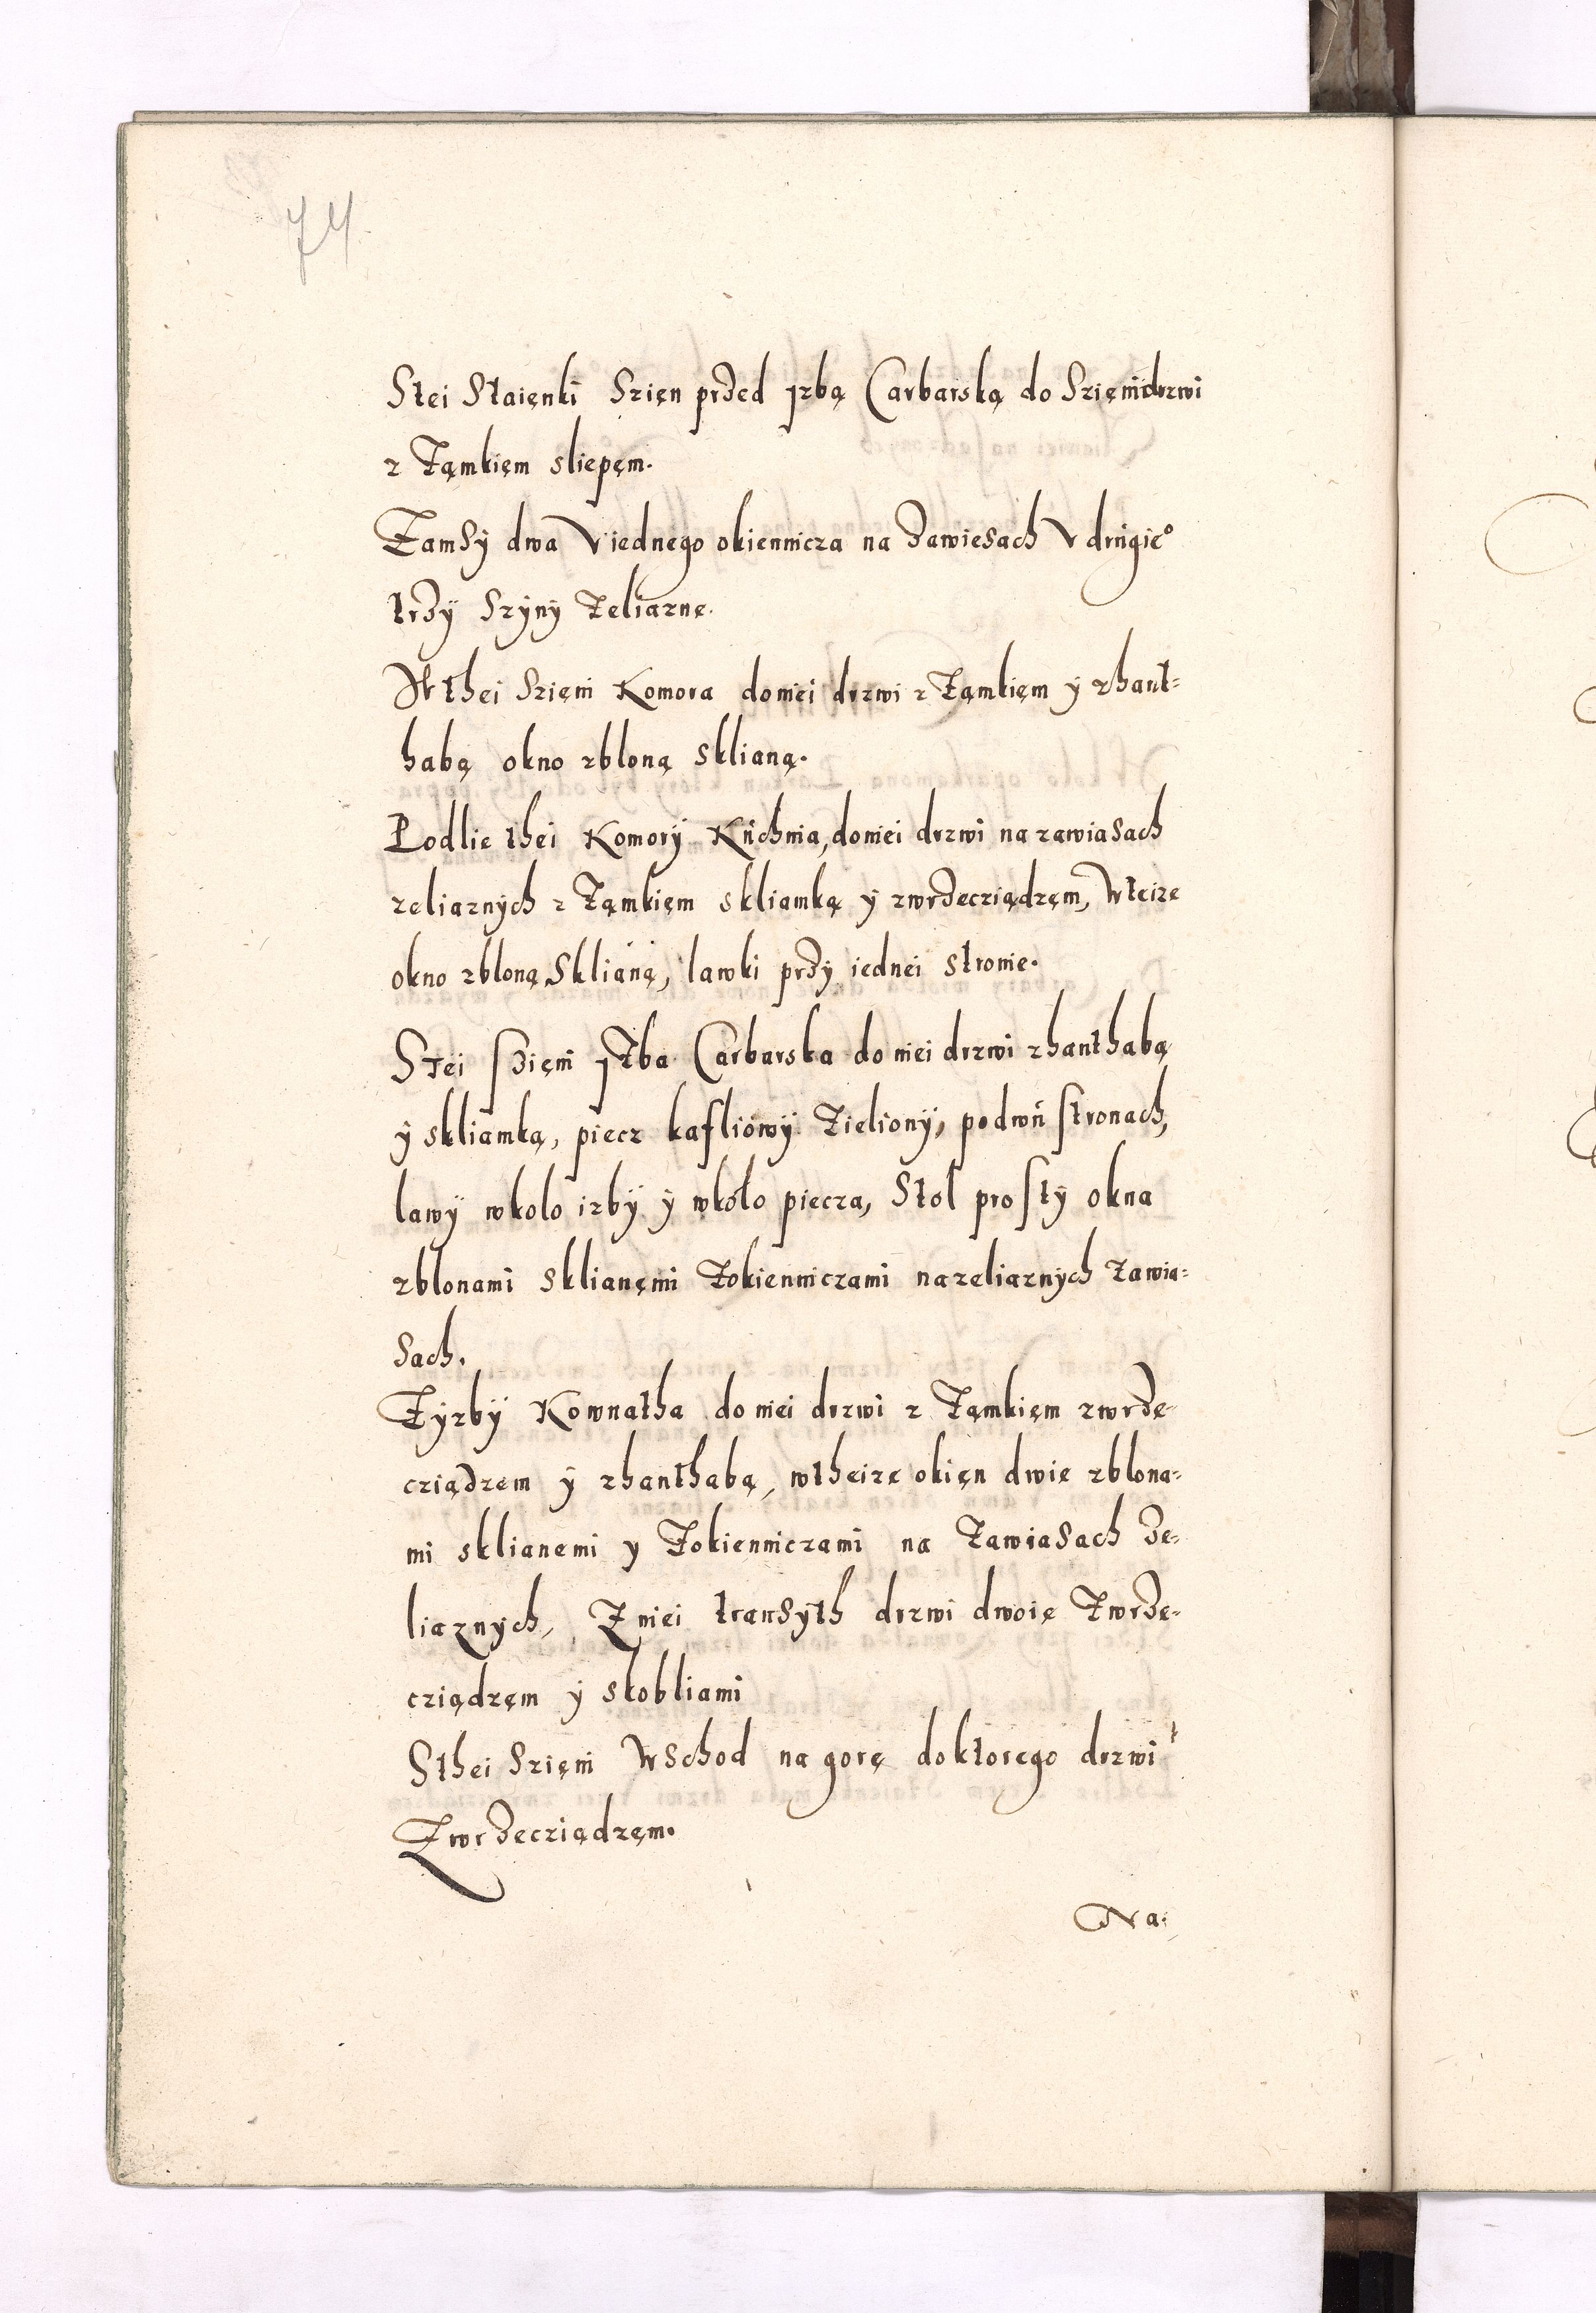 74
Stei Staięnki Szięn przed yzbą Carbarską do Szięni drzwi
z Zamkięm sliepęm.
Zamsÿ dwa V iednego okiennicza na zawiesach V drugieº
trzÿ Szÿnÿ Zeliaznę.
W thei Szięni Komora do niei drzwi z Zamkięm ÿ zhant=
habą okno zbloną sklianą.
Podlie thei Komorÿ Kuchnia, do niei drzwi na zawiasach
zeliaznÿch z Zamkięm skliamką ÿ zwrzecziądzęm, W teize
okno zbloną Sklianą, lawki przÿ iednei stronie.
S tei szięni yzba Carbarska do niei drzwi zhanthabą
ÿ skliamką, piecz kafliowÿ Zielionÿ, po dwu stronach,
lawÿ wkolo izbÿ ÿ wkolo piecza, Stol prostÿ okna
zblonami sklianęmi Zokienniczami na zeliaznÿch zawia=
sach.
Zÿzbÿ Kownatha do niei drzwi z Zamkięm zwrzę=
cziądzem ÿ zhanthabą, wtheize okięn dwie zblona=
mi sklianemi y Zokienniczami na Zawiasach ze=
liaznych, Zniei transÿth drzwi dwoię Zwrze=
cziądzęm ÿ skobliami
S thei Szięni Wschod na gorę do ktorego drzwi
Zwrzecziądzęm.
Na.